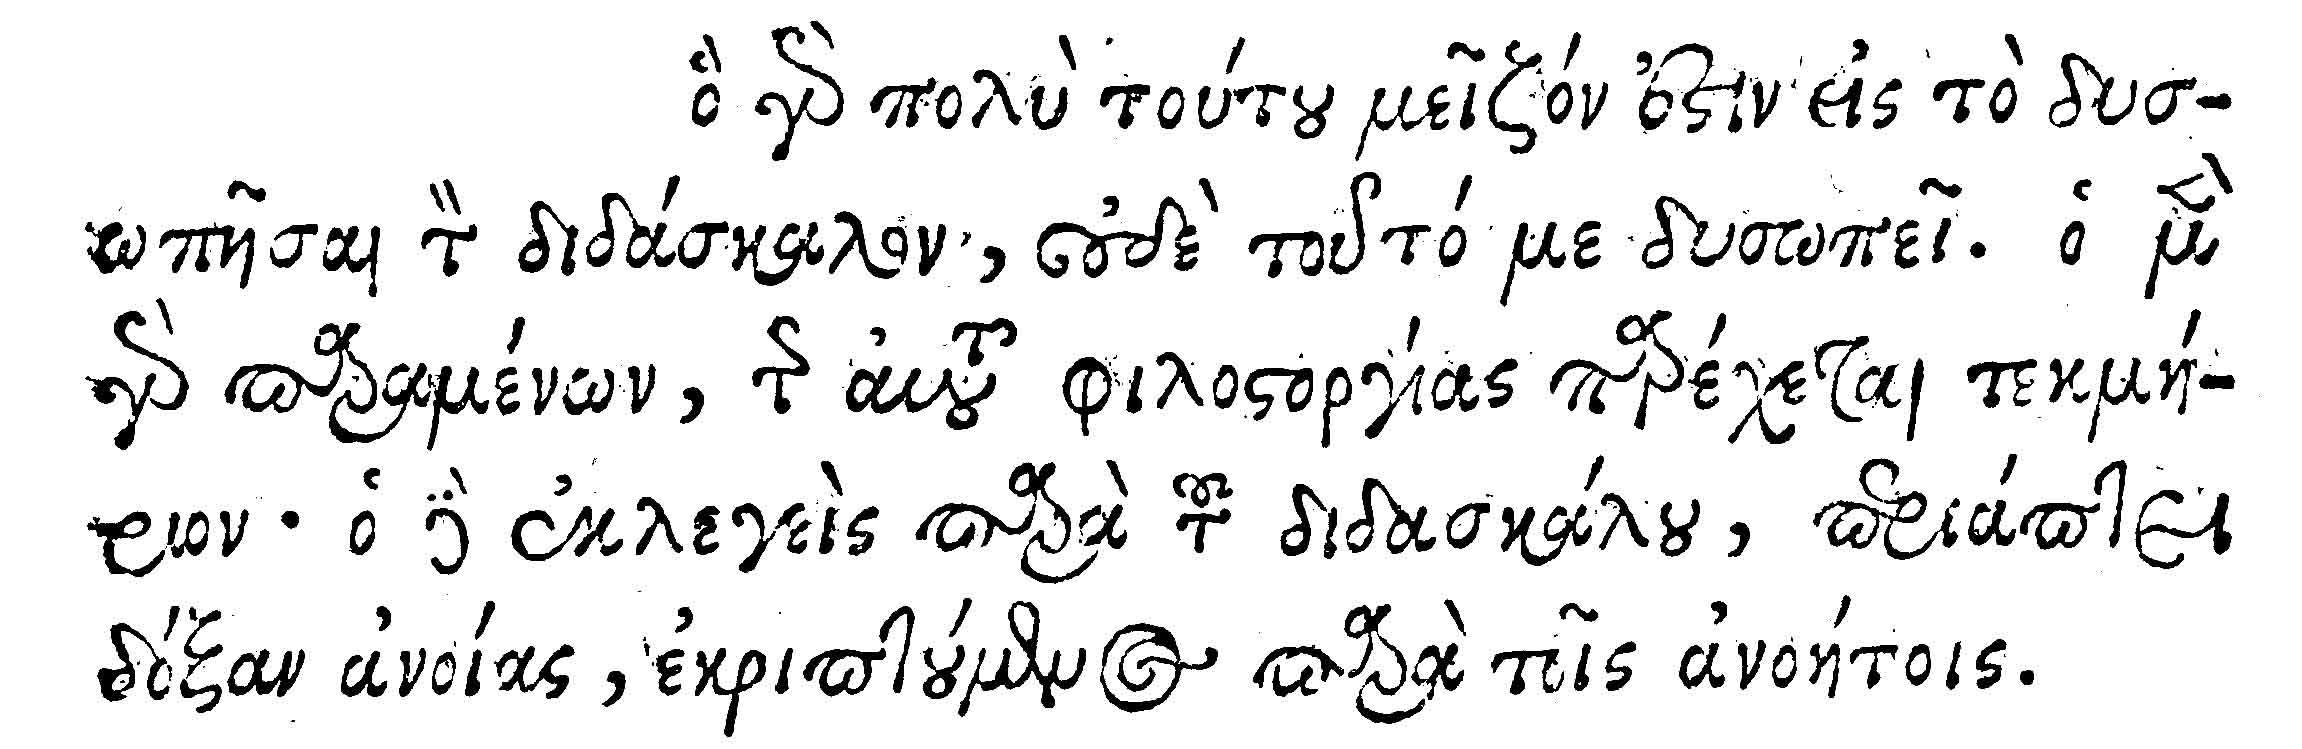 ὃ γὰρ πολὺ τούτου μεῖζόν ἐστιν εἰς τὸ δυσ-
ωπῆσαι τὸν διδάσκαλον, οὐδὲ τοῦτό με δυσωπεῖ. ὁ μὲν
γὰρ παραμένων, τῆς αὐτοῦ φιλοστοργίας παρέχεται τεκμή-
ριον· ὁ δὲ ἐκλεγεὶς παρὰ τοῦ διδασκάλου, περιάπτει
δόξαν ἀνοίας, ἐκριπτούμενος παρὰ τοῖς ἀνοήτοις.